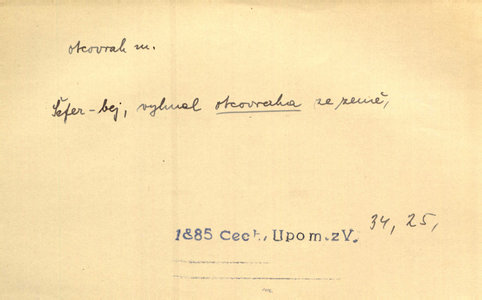 otcovrah m.
Šefer-bej, vyhnal otcovraha ze země,
1885 Cech, Upom. z V. 34, 25,